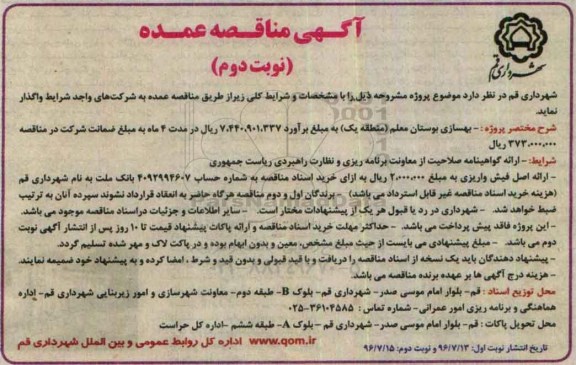 آگهی مناقصه عمده
(نوبت دوم)
شهرداری قم
شهرداری قم در نظر دارد موضوع پروژه مشروحه ذیل را با مشخصات و شرایط کلی زیر از طریق مناقصه عمده به شرکت‌های واجد شرایط واگذار
نماید.
شرح مختصر پروژه : - بهسازی بوستان معلم (منطقه یک) به مبلغ برآورد ۷،۴۴۰،۹۰۱،۳۳۷ ریال در مدت ۴ ماه به مبلغ ضمانت شرکت در مناقصه
۳۷۳،۰۰۰،۰۰۰ ریال
شرایط: - ارائه گواهینامه صلاحیت از معاونت برنامه ریزی و نظارت راهبردی ریاست جمهوری
- ارائه اصل فیش واریزی به مبلغ ۲،۰۰۰،۰۰۰ ریال به ازای خرید اسناد مناقصه به شماره حساب ۴۰۹۲۹۹۴۶۰۷ بانک ملت به نام شهرداری قم
(هزینه خرید اسناد مناقصه غیر قابل استرداد می باشد) - برندگان اول و دوم مناقصه هرگاه حاضر به انعقاد قرارداد نشوند سپرده آنان به ترتیب
ضبط خواهد شد. - شهرداری در رد یا قبول هر یک از پیشنهادات مختار است. - سایر اطلاعات و جزئیات در اسناد مناقصه موجود می باشد.
- این پروژه فاقد پیش پرداخت می باشد. - حداکثر مهلت خرید اسناد مناقصه و ارائه پاکات پیشنهاد قیمت تا ۱۰ روز پس از انتشار آگهی نوبت
دوم می باشد. - مبلغ پیشنهادی می بایست از حیث مبلغ مشخص، معین و بدون ابهام بوده و در پاکت لاک و مهر شده تسلیم گردد.
- پیشنهاد دهندگان باید یک نسخه از اسناد مناقصه را دریافت و با قید قبولی و بدون قید و شرط ، امضا کرده و به پیشنهاد خود ضمیمه نمایند.
- هزینه درج آگهی ها بر عهده برنده مناقصه می باشد.
محل توزیع اسناد : قم- بلوار امام موسی صدر- شهرداری قم- بلوک B- طبقه دوم- معاونت شهرسازی و امور زیربنایی شهرداری قم- اداره
هماهنگی و برنامه ریزی امور عمرانی- شماره تماس : ۳۶۱۰۴۵۸۵-۰۲۵
محل تحویل پاکات : قم- بلوار امام موسی صدر- شهرداری قم - بلوک A- طبقه ششم -اداره کل حراست
تاریخ انتشار نوبت اول: ۹۶/۷/۱۳ و نوبت دوم: ۹۶/۷/۱۵
www.qom.ir اداره کل روابط عمومی و بین الملل شهرداری قم